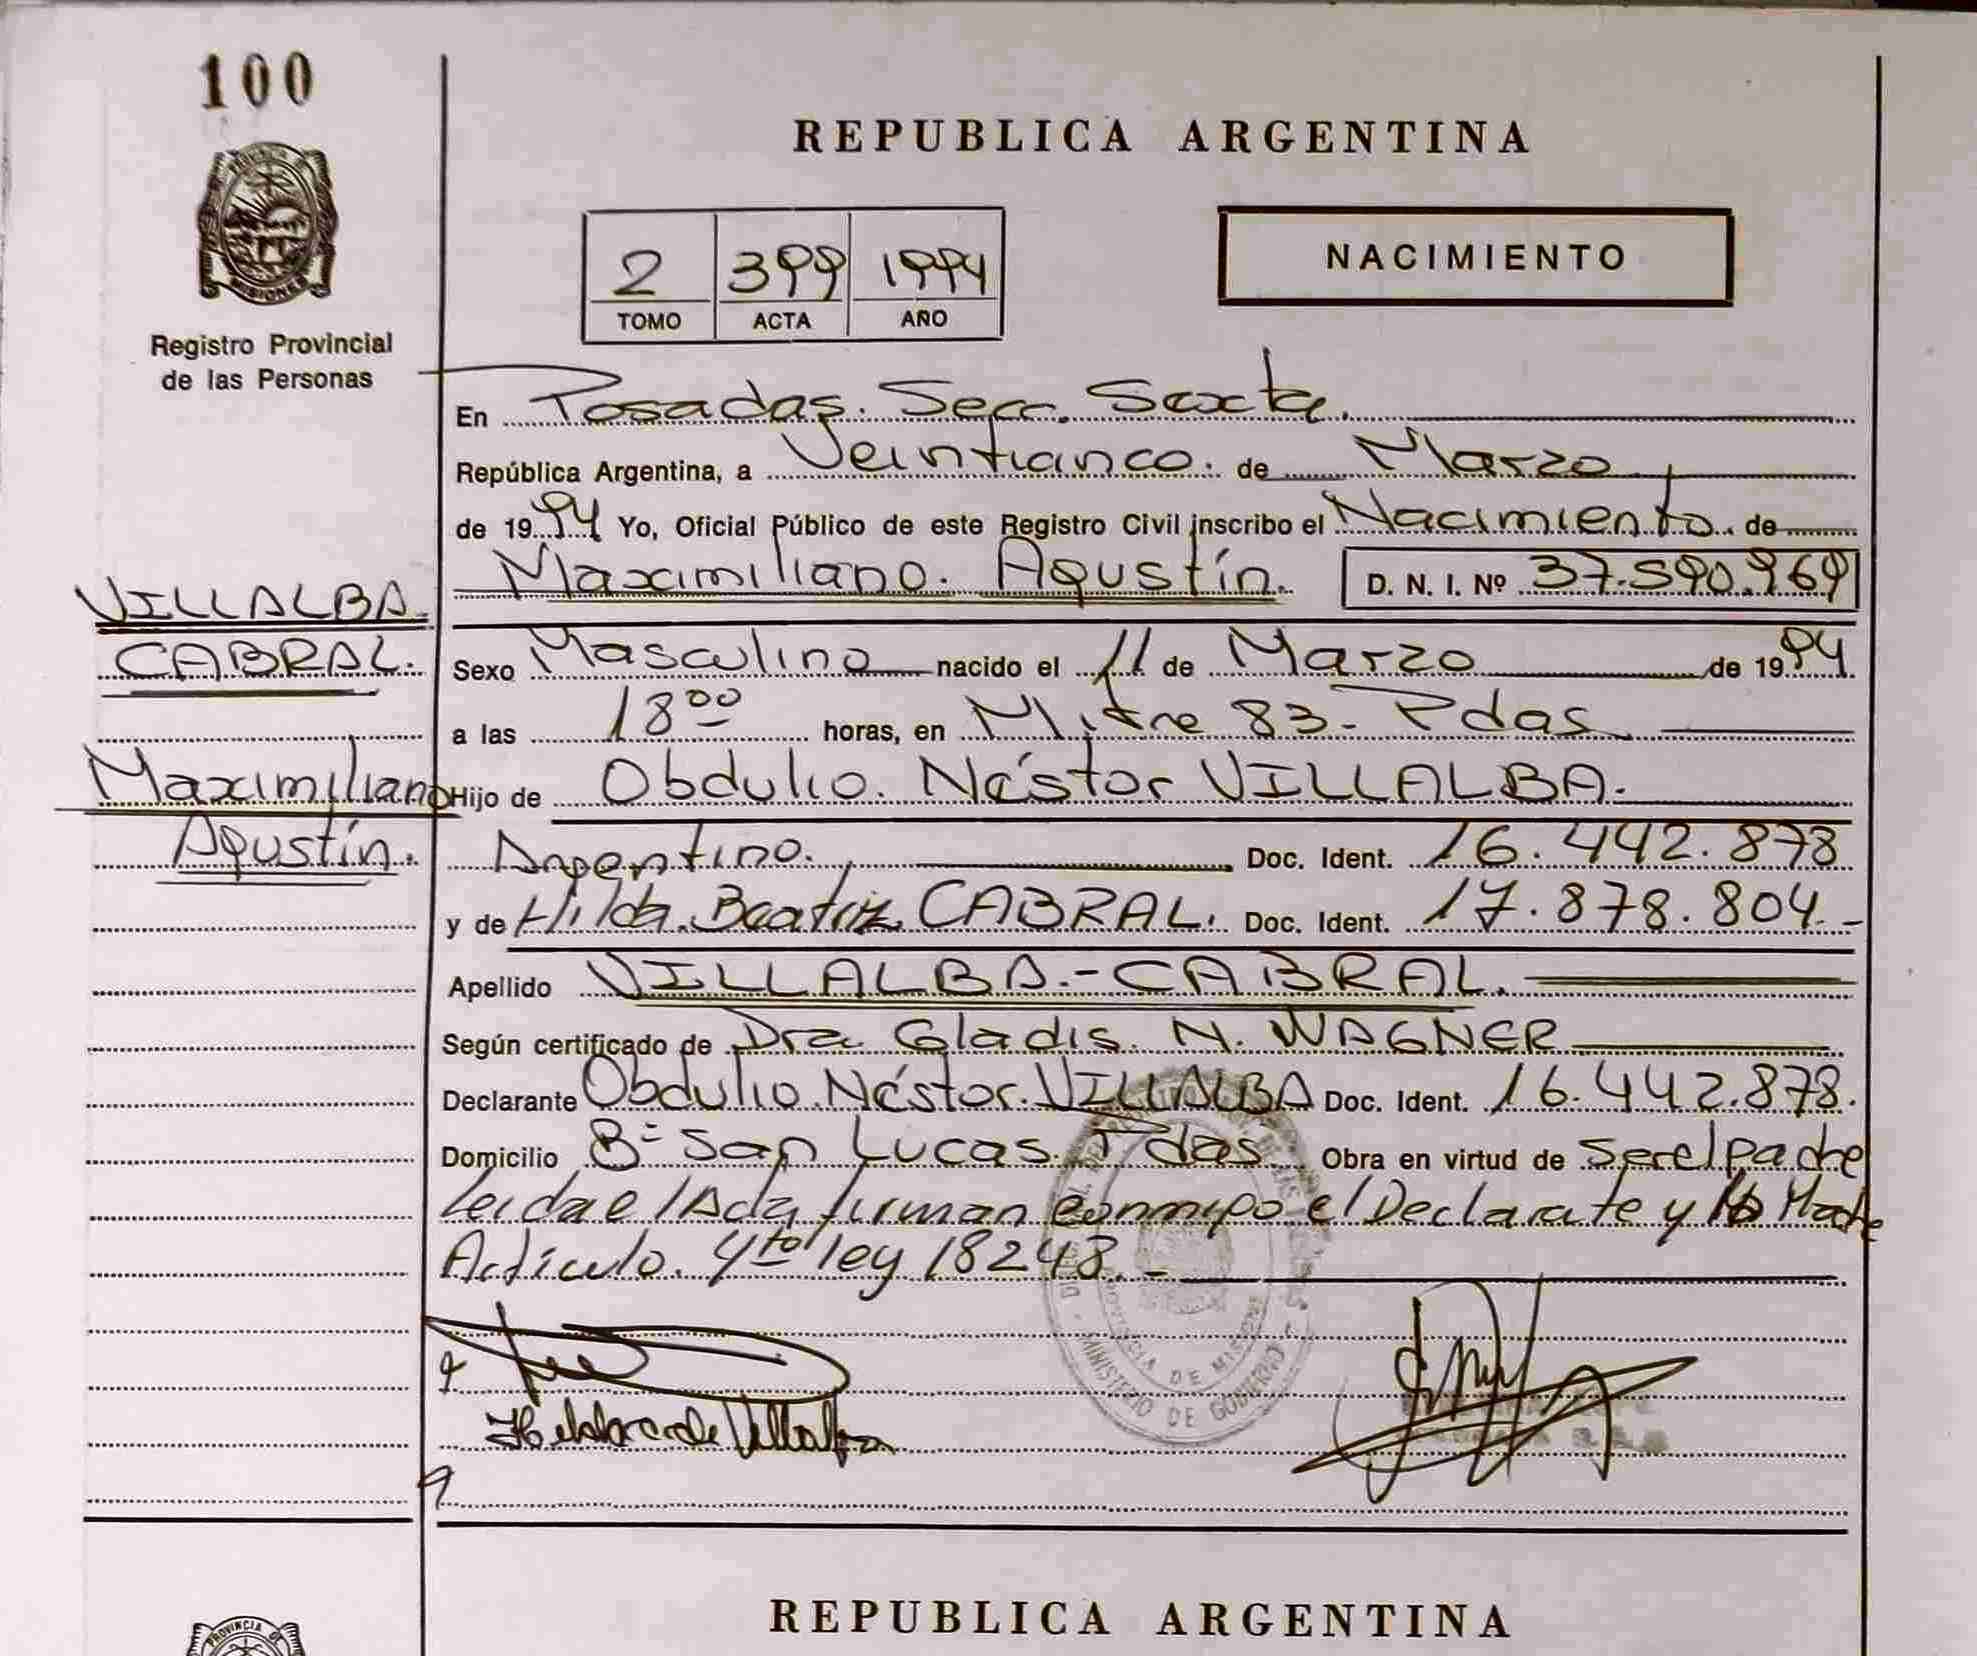 100
MISIONES
Registro Provincial
de las Personas
REPUBLICA ARGENTINA
2 399 1994
TOMO ACTA AÑO
NACIMIENTO
En Posadas. Secc. Sexta.
República Argentina, a Veinticinco. de Marzo
de 1994 Yo, Oficial Público de este Registro Civil inscribo el Nacimiento. de
Maximiliano. Agustín. D. N. I. Nº 37.590.969
VILLALBA.
CABRAL.
Maximiliano
Agustín.
Sexo Masculino nacido el 11 de Marzo de 1994
a las 18 00 horas, en Mitre 83 - Pdas
Hijo de Obdulio. Néstor VILLALBA.
Argentino. Doc. Ident. 16.442.878
y de Hilda. Beatriz CABRAL. Doc. Ident. 17.878.804 -
Apellido VILLALBA - CABRAL.
Según certificado de Dra Gladis. N. WAGNER
Declarante Obdulio. Néstor. VILLALBA Doc. Ident. 16.442.878.
Domicilio Bº San Lucas. Pdas. Obra en virtud de ser el padre
leida el Acta firman conmigo el Declarate y la Madre
Articulo. 4to ley 18248. -
PROVINCIA DE MISIONES
MINISTERIO DE GOBIERNO
de Villalba
REPUBLICA ARGENTINA
PROVINCIA DE